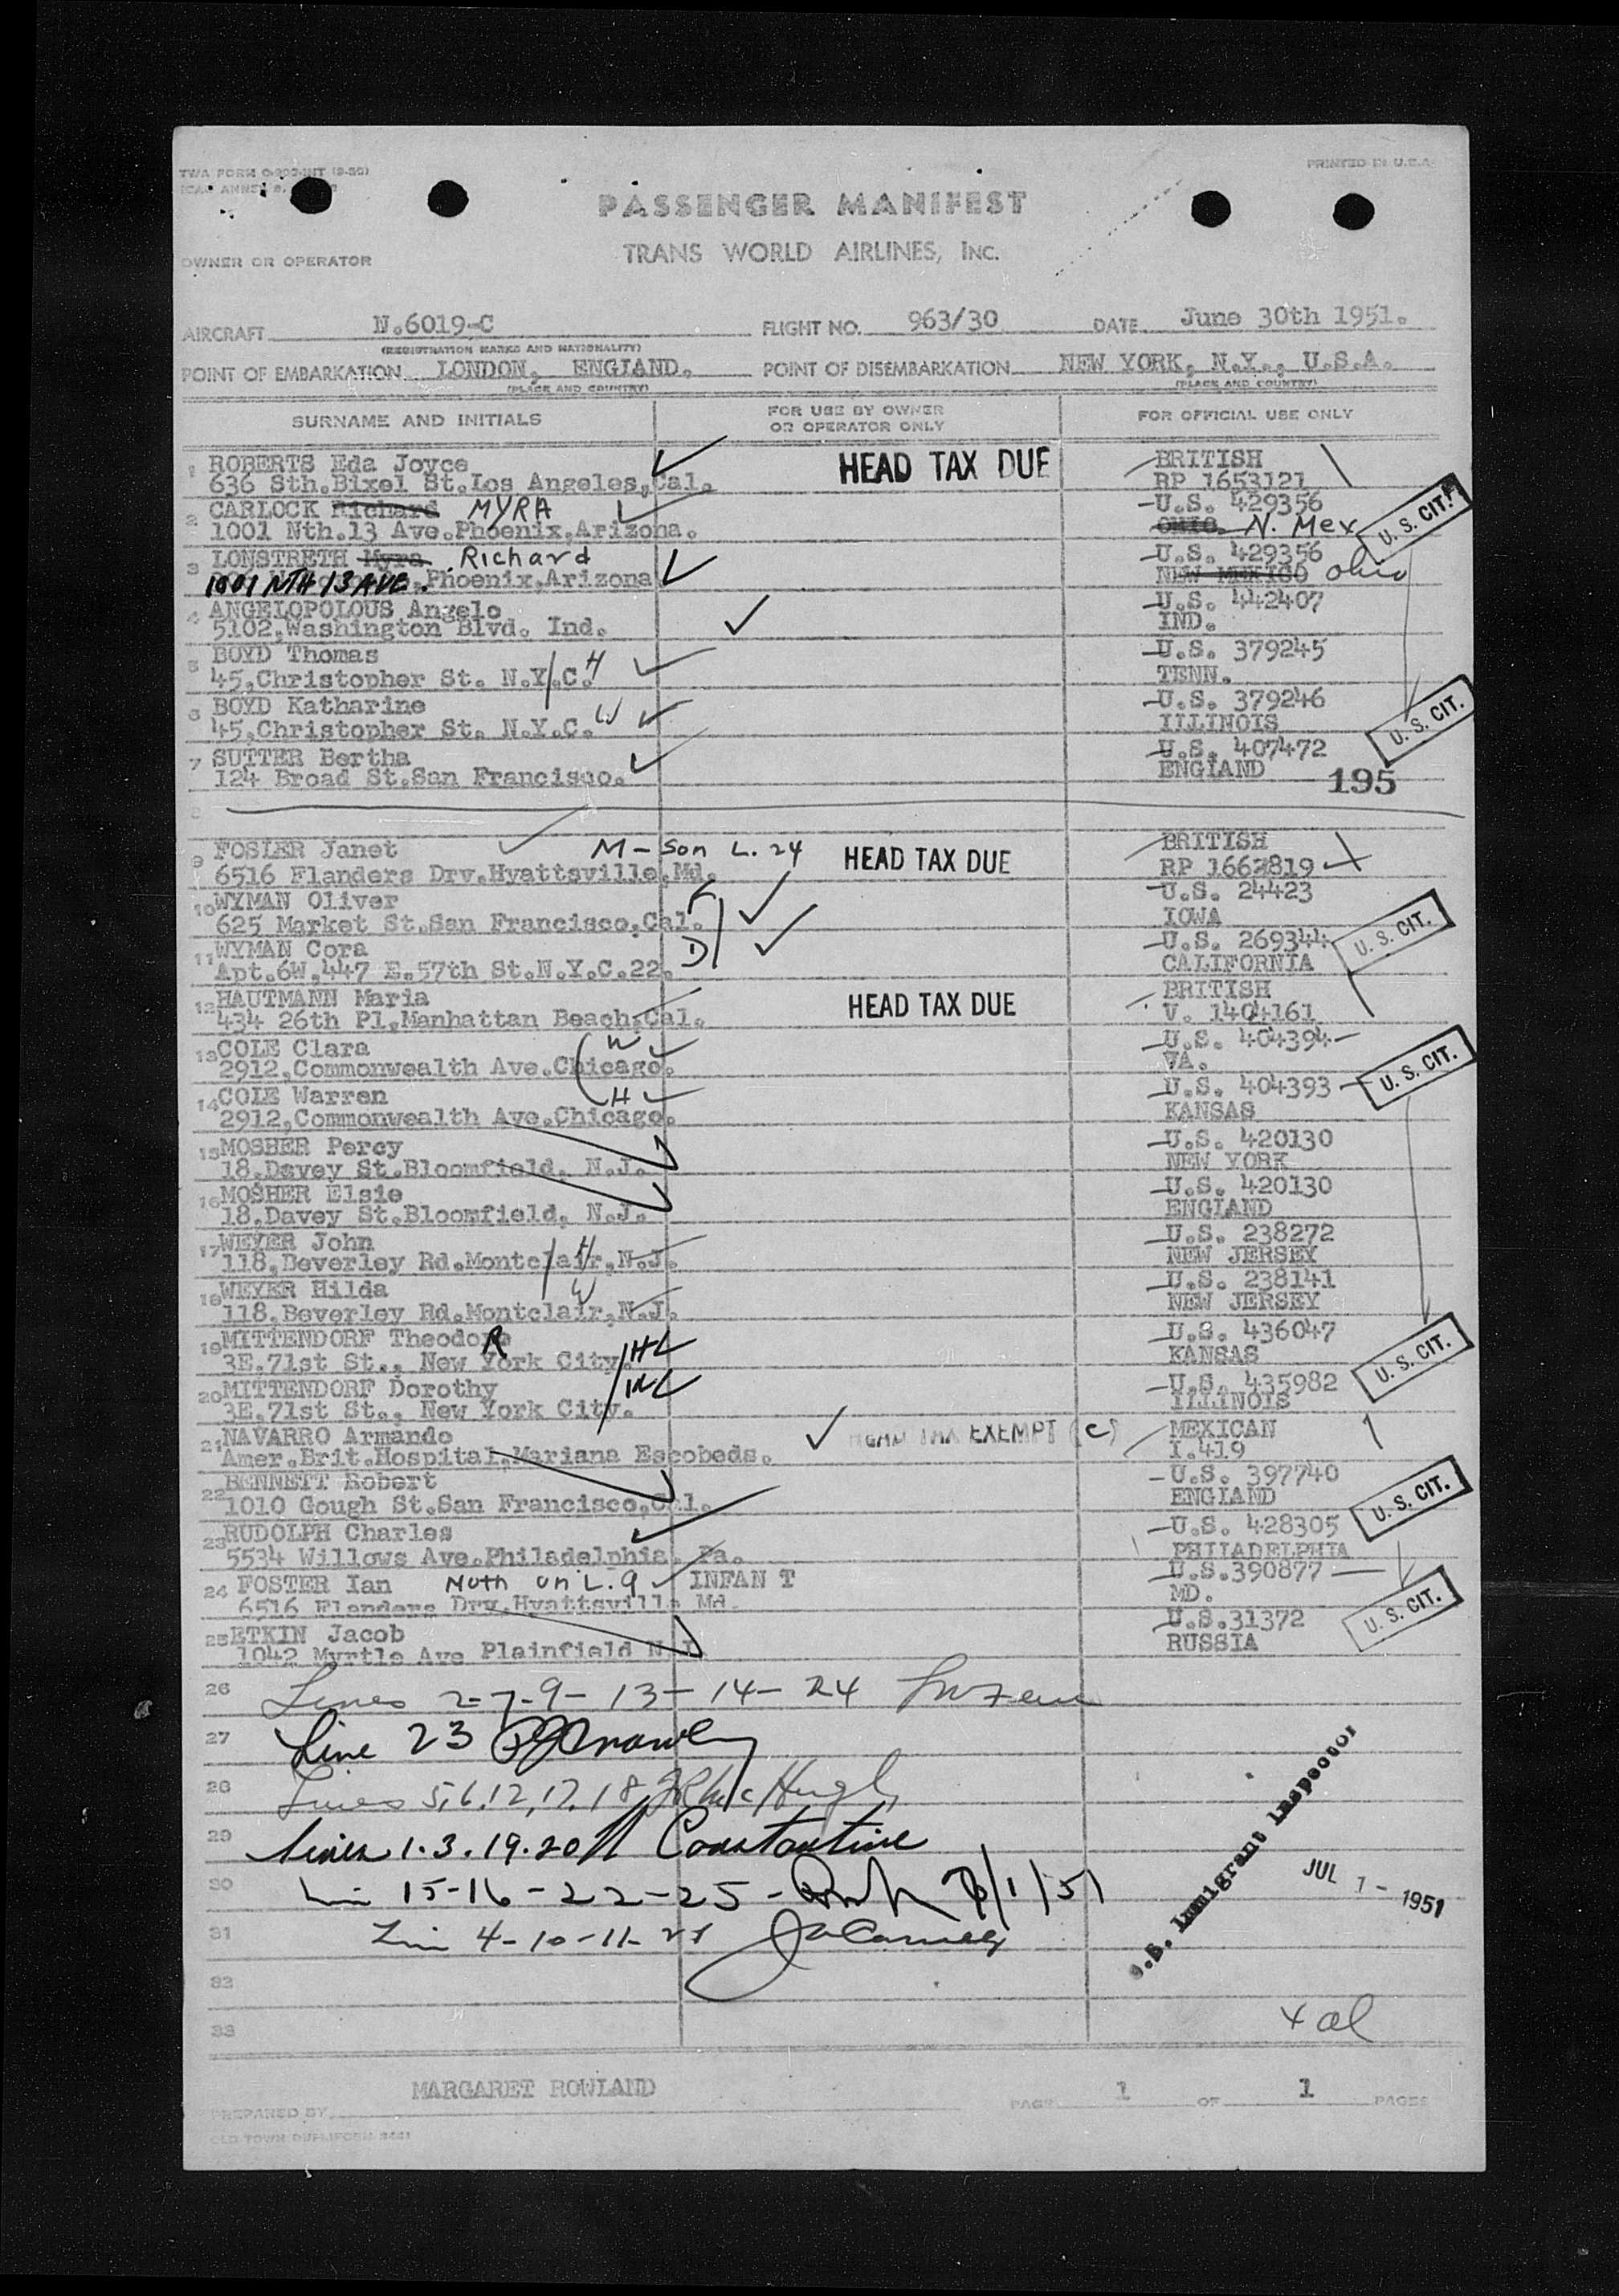 TWA FORM
PRINTED IN U.S.A.
PASSENGER MANIFEST
TRANS WORLD AIRLINES, INC.
OWNER OR OPERATOR
AIRCRAFT N.6019-C FLIGHT NO. 963/30 DATE June 30th 1951.
(REGISTRATION MARKS AND NATIONALITY)
POINT OF EMBARKATION LONDON, ENGLAND. POINT OF DISEMBARKATION NEW YORK, N.Y., U.S.A.
(PLACE AND COUNTRY) (PLACE AND COUNTRY)
SURNAME AND INITIALS FOR USE BY OWNER OR OPERATOR ONLY FOR OFFICIAL USE ONLY
1 ROBERTS Eda Joyce HEAD TAX DUE BRITISH
636 Sth.Bixel St.Los Angeles,Cal. RP 1653121
2 CARLOCK Richard MYRA U.S. 429356
1001 Nth.13 Ave.Phoenix,Arizona. OHIO. N. Mex U.S. CIT.
3 LONSTRETH Myra Richard U.S. 429356
1001 NTH 13 AVE. Phoenix,Arizona NEW MEXICO Ohio
4 ANGELOPOLOUS Angelo U.S. 442407
5102,Washington Blvd. Ind. IND.
5 BOYD Thomas U.S. 379245
45,Christopher St. N.Y.C. H TENN.
6 BOYD Katharine U.S. 379246
45,Christopher St. N.Y.C. W ILLINOIS U.S. CIT.
7 SUTTER Bertha U.S. 407472
124 Broad St.San Francisco. ENGLAND 195
8
9 FOSTER Janet M - Son L. 24 HEAD TAX DUE BRITISH
6516 Flanders Drv.Hyattsville,Md. RP 1662819
10 WYMAN Oliver U.S. 24423
625 Market St.San Francisco,Cal. F IOWA
11 WYMAN Cora D U.S. 269344 U.S. CIT.
Apt.6W.447 E.57th St.N.Y.C.22. CALIFORNIA
12 HAUTMANN Maria HEAD TAX DUE BRITISH
434 26th Pl.Manhattan Beach,Cal. V. 1404161
13 COLE Clara W U.S. 404394
2912,Commonwealth Ave.Chicago. VA.
14 COLE Warren H U.S. 404393 U.S. CIT.
2912,Commonwealth Ave.Chicago. KANSAS
15 MOSHER Percy U.S. 420130
18.Davey St.Bloomfield, N.J. NEW YORK
16 MOSHER Elsie U.S. 420130
18,Davey St.Bloomfield, N.J. ENGLAND
17 WEYER John H U.S. 238272
118,Beverley Rd.Montclair,N.J. NEW JERSEY
18 WEYER Hilda W U.S. 238141
118,Beverley Rd.Montclair,N.J. NEW JERSEY
19 MITTENDORF Theodore R U.S. 436047
3E.71st St., New York City. H KANSAS U.S. CIT.
20 MITTENDORF Dorothy W U.S. 435982
3E.71st St., New York City. ILLINOIS
21 NAVARRO Armando HEAD TAX EXEMPT (C) MEXICAN
Amer.Brit.Hospital,Mariana Escobeds. I.419
22 BENNETT Robert U.S. 397740
1010 Gough St.San Francisco,Cal. ENGLAND U.S. CIT.
23 RUDOLPH Charles U.S. 428305
5534 Willows Ave.Philadelphia. Pa. PHILADELPHIA
24 FOSTER Ian Moth on L. 9 INFANT U.S.390877
6516 Flanders Drv.Hyattsville Md. MD.
25 ETKIN Jacob U.S.31372 U.S. CIT.
1042 Myrtle Ave Plainfield N.J. RUSSIA
26 Lines 2-7-9-13-14-24
27 Line 23
28 Lines 5,6,12,17,18 McHugh
29 Lines 1.3.19.20 Constantine
30 15-16-22-25 7/1/51
31 4-10-11-21
U.S. Immigrant Inspector
JUL 1 - 1951
32
33
MARGARET ROWLAND
PREPARED BY PAGE 1 OF 1 PAGES
OLD TOWN DUPLIFORM